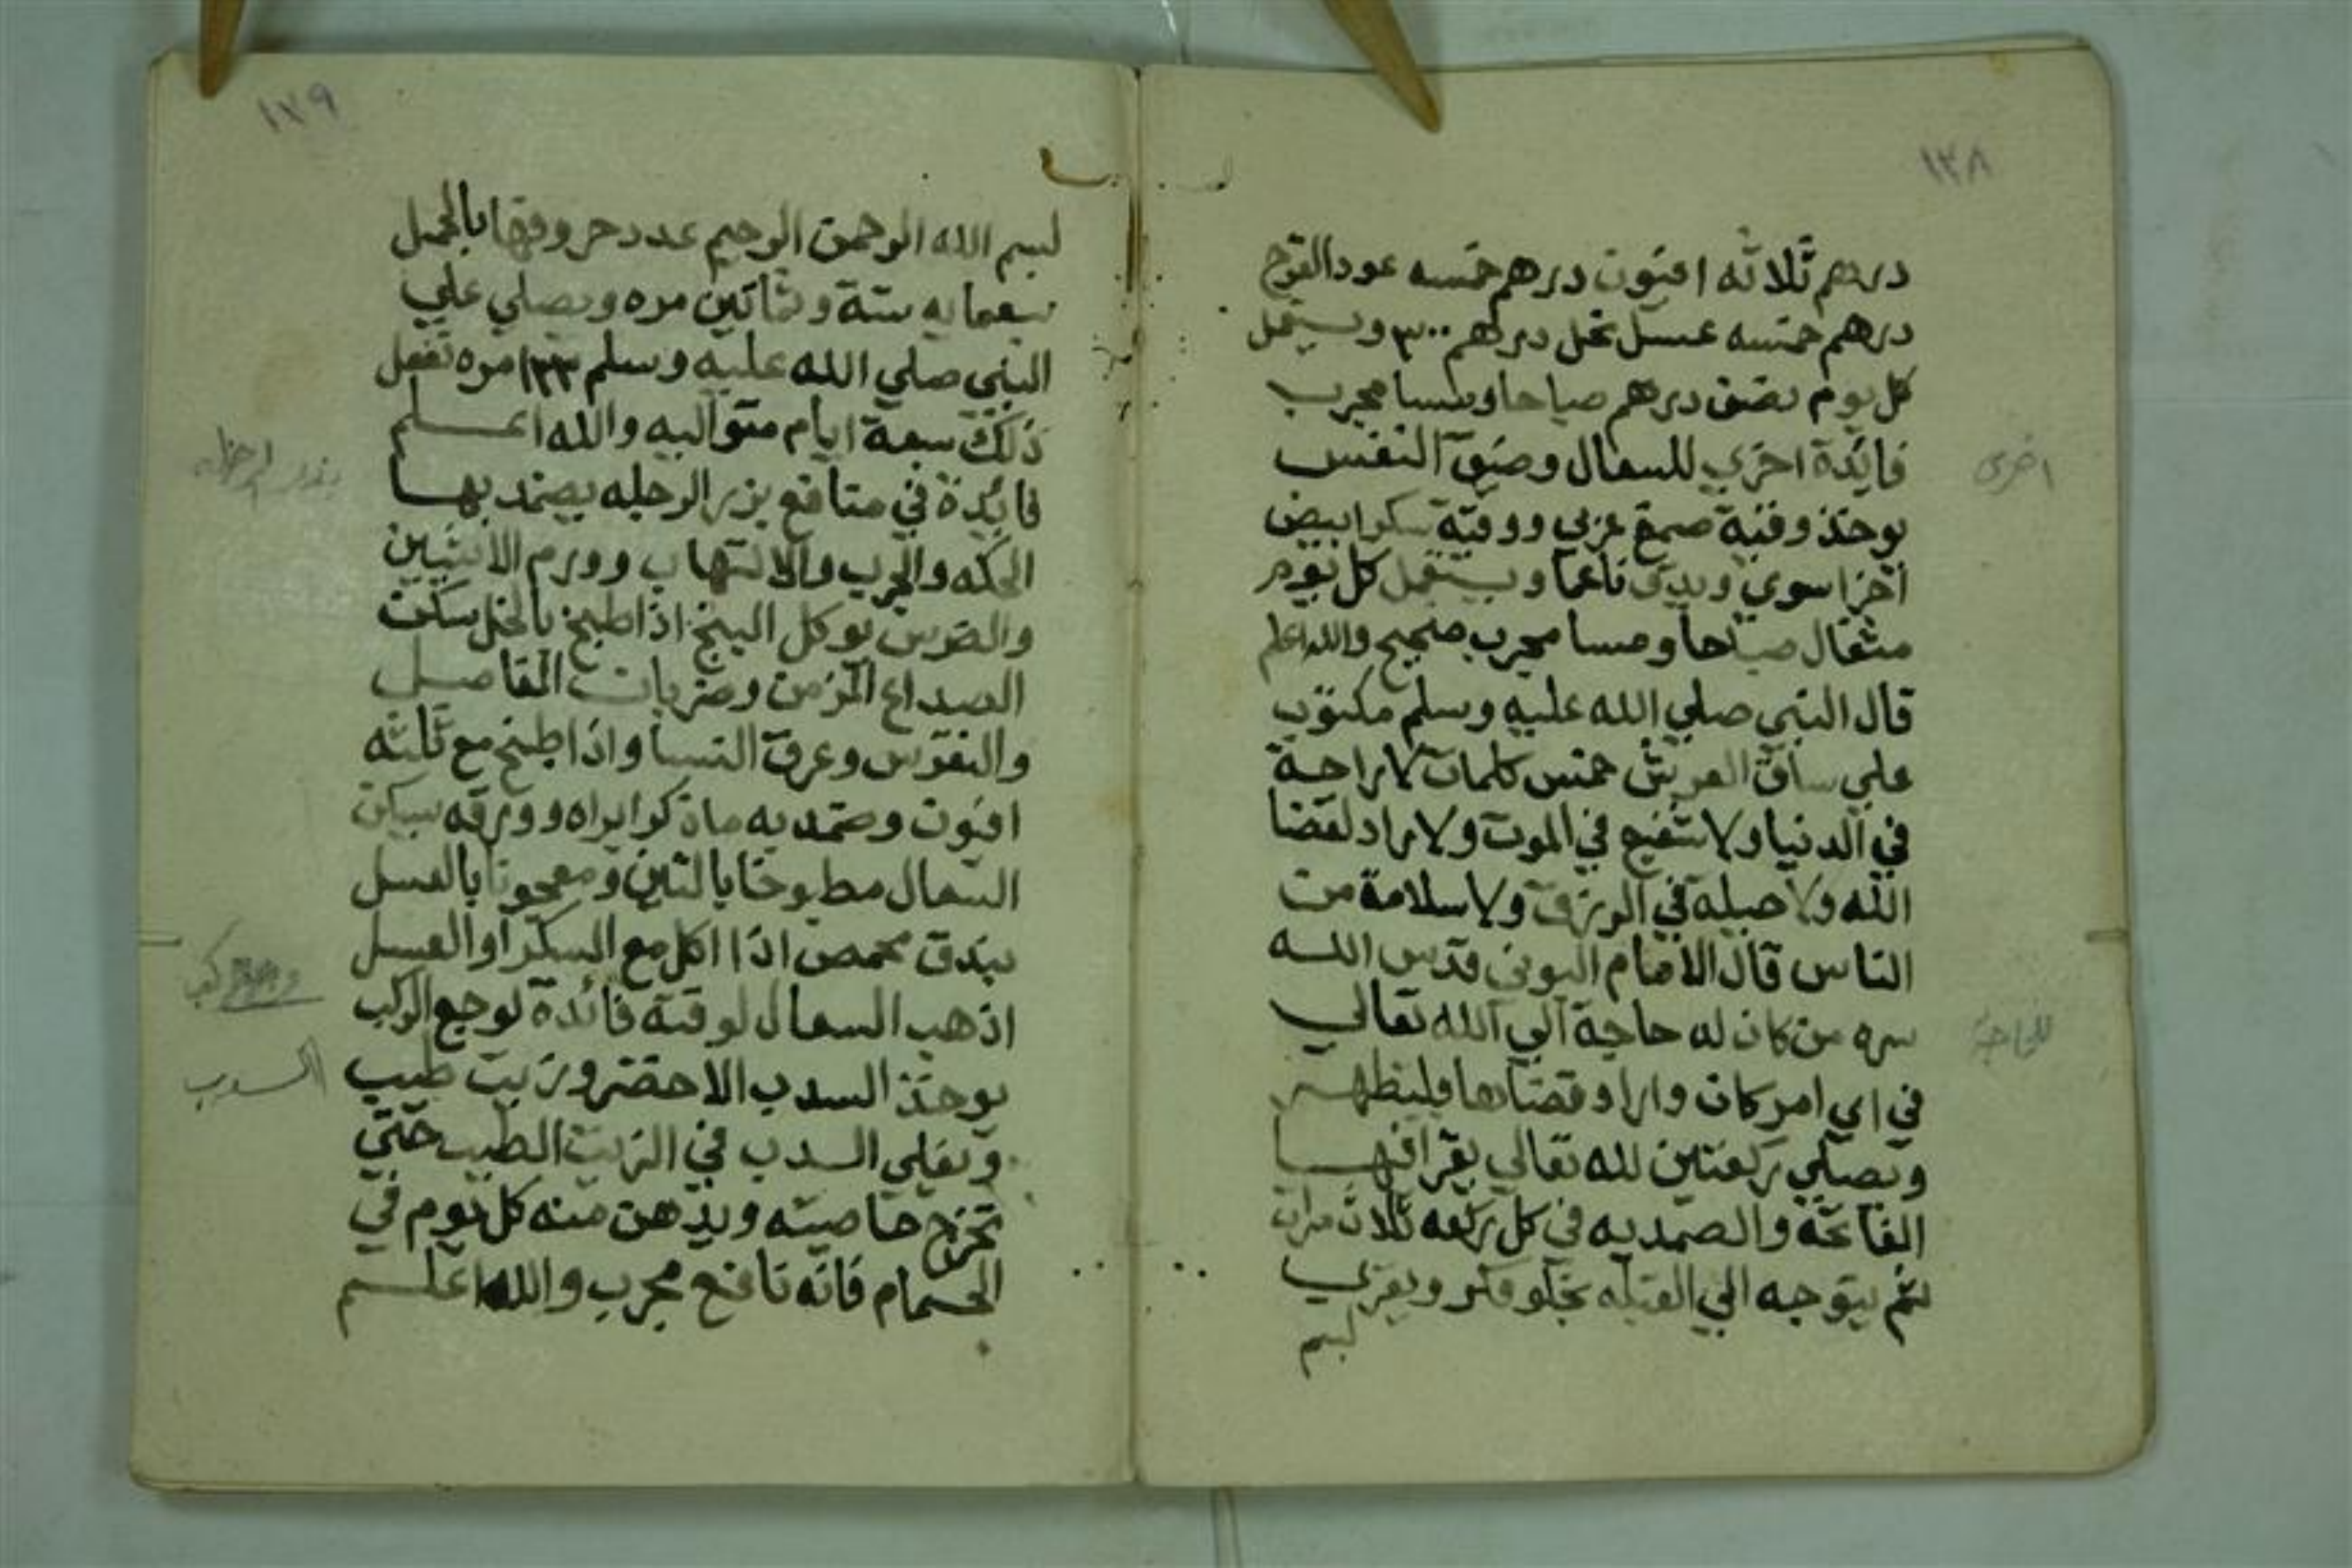 ١٢٨
درهم ثلاثه افيون درهم خمسه عود القرح
درهم خمسه عسل نحل درهم ٣٠٠ ويستعمل
كل يوم نصف درهم صباحا ومسا مجرب
فائدة اخري للسعال وضيق النفس
اخرى
يوخذ وقية صمغ عربي ووقية سكر ابيض
اجزا سوي ويدق ناعما ويستعمل كل يوم
مثقال صباحا ومسا مجرب صحيح والله اعلم
قال النبي صلي الله عليه وسلم مكتوب
علي ساق العرش خمس كلمات لا راحة
في الدنيا ولا شفيع في الموت ولا راد لقضا
الله ولا حيلة في الرزق ولا سلامة من
الناس قال الامام البوني قدس الله
سره من كان له حاجة الي الله تعالي
للحاجة
في اي امر كان واراد قضاها فليتطهر
ويصلي ركعتين لله تعالي يقرا فيها
الفاتحة والصمديه في كل ركعه ثلاث مرات
ثم يتوجه الي القبله ويقري
بسم
١٢٩
بسم الله الرحمن الرحيم عدد حروفها بالجمل
سبعمايه ستة وثمانين مره ويصلي علي
النبي صلي الله عليه وسلم ١٣٣ مره تفعل
ذلك سبعة ايام متواليه والله اعلم
فائدة في منافع بزر الرجله يضمد بها
بزر الرجله
الحكه والجرب والالتهاب وورم الانثيين
والضرس يوكل البنج اذا طبخ بالخل سكن
الصداع المزمن وضربات المفاصل
والنقرس وعرق النسا واذا طبخ مع ثلثه
افيون وضمد به ماذكر ابراه وورقه يسكن
السعال مطبوخا بالتين ومعجونا بالعسل
بندق محمص اذا اكل مع السكر او العسل
اذهب السعال لوقته فائدة لوجع الركب
وجع ركب
يوخذ السدب الاخضر وزيت طيب
السدب
وتغلي السدب في الزيت الطيب حتي
تخرج خاصيته ويدهن منه كل يوم في
الحمام فانه نافع مجرب والله اعلم